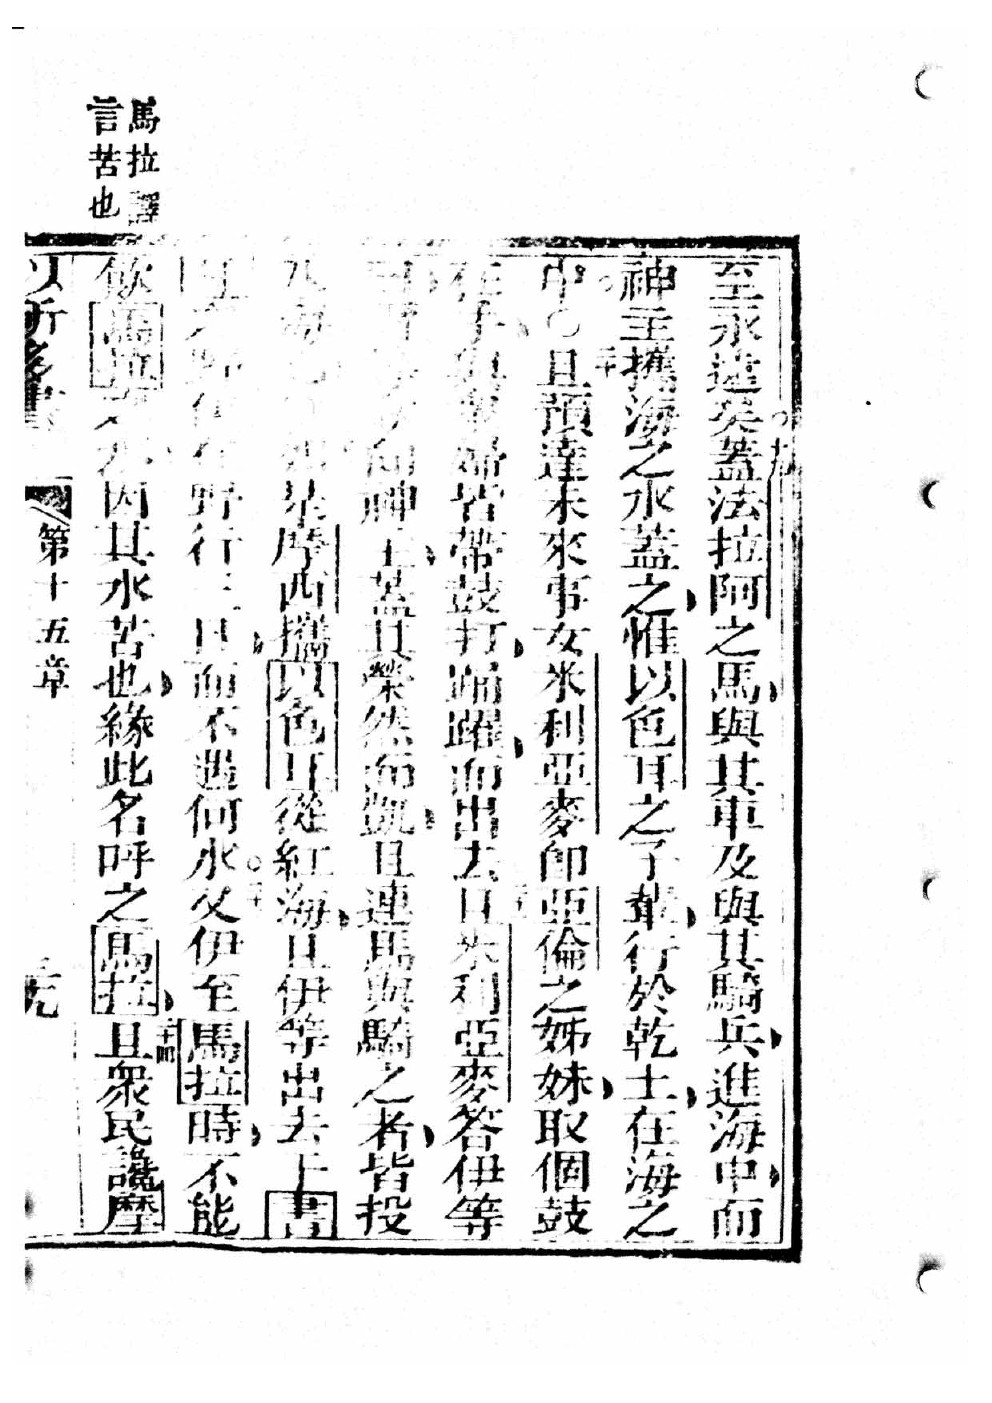 馬拉譯
言苦也
至永遠矣蓋法拉阿之馬與其車及與其騎兵進海中而
神主攜海之水蓋之惟以色耳之子輩行於乾土在海之
中○且預達未來事女米利亞麥即亞倫之姊妹取個鼓
在手與眾婦皆帶鼓打踊躍而出去且米利亞麥答伊等
神主蓋其榮然而凱且連馬與騎之者皆投
海 摩西攜以色耳從紅海且伊等出去于書
野行三日而不遇何水父伊至馬拉時不能
飲馬拉之水因其水苦也緣此名呼之馬拉且眾民讒摩
第十五章